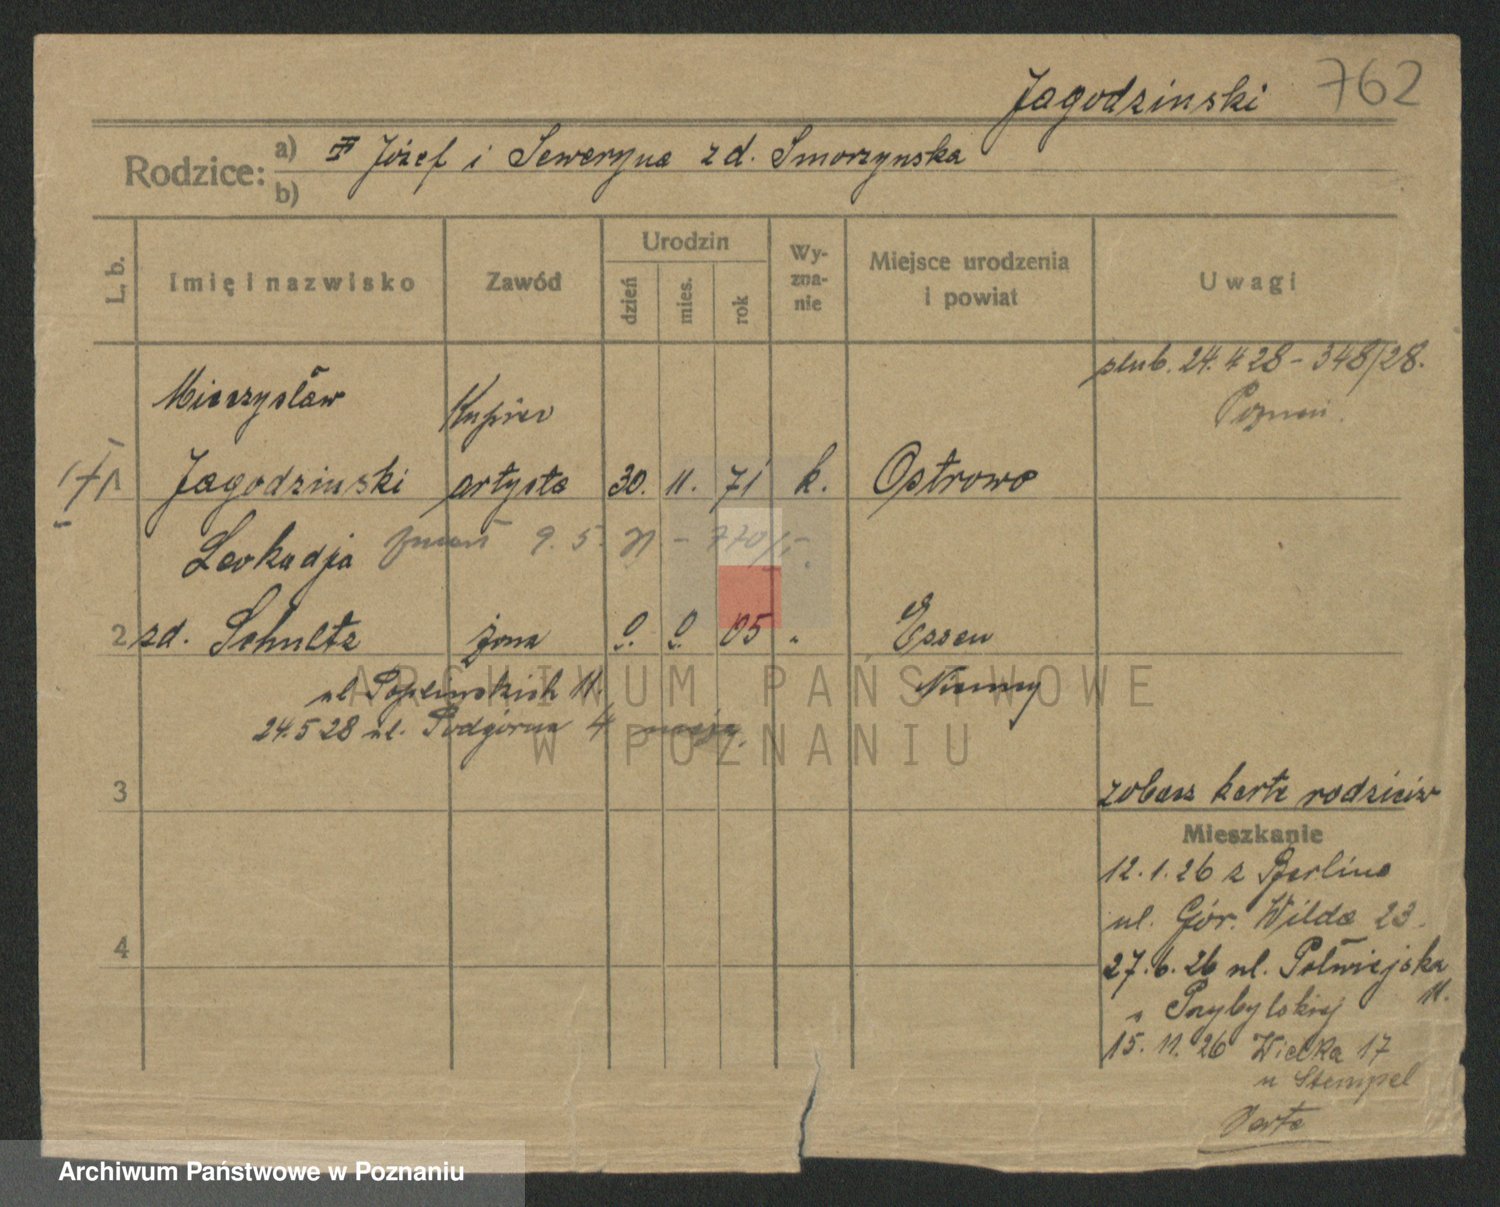 Jagodzinski 762
Rodzice: a) Józef i Seweryna zd. Smorzynska
b)
L. b. Imię i nazwisko Zawód Urodzin dzień mies. rok Wyznanie Miejsce urodzenia i powiat Uwagi
ślub. 24.4 28 - 348/28.
Poznań.
Mieczysław Kupiec
Jagodzinski artysta 30. 11. 71 k. Ostrowo
Leokadja 9. 5.
2 zd. Schultz żona 9. 9. 05 " Essen
ul. Poplinskich 11. Niemcy
24.5 28 ul. Podgórna 4
3
zobacz karte rodziców
Mieszkanie
12.1.26 z Berlina
ul. Gór. Wilda 23.
4
27.6.26 ul. Półwiejska 11.
" Przybylskiej
15.11.26 Wielka 17
u Stempel
Warta
ARCHIWUM PAŃSTWOWE
W POZNANIU
Archiwum Państwowe w Poznaniu